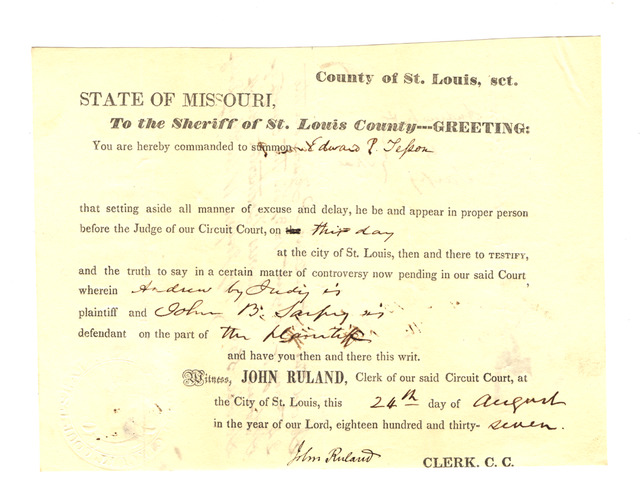 County of St. Louis, sct.
STATE OF MISSOURI,
To the Sheriff of St. Louis County---GREETING:
You are hereby commanded to summon Edward P. Tesson
that setting aside all manner of excuse and delay, he be and appear in proper person
before the Judge of our Circuit Court, on the this day
at the city of St. Louis, then and there to TESTIFY,
and the truth to say in a certain matter of controversy now pending in our said Court
wherein Andrew by Judy is
plaintiff and John B. Sarpy is
defendant on the part of the plaintiff
and have you then and there this writ.
Witness, JOHN RULAND, Clerk of our said Circuit Court, at
the City of St. Louis, this 24th day of August
in the year of our Lord, eighteen hundred and thirty-seven.
John Ruland CLERK, C. C.